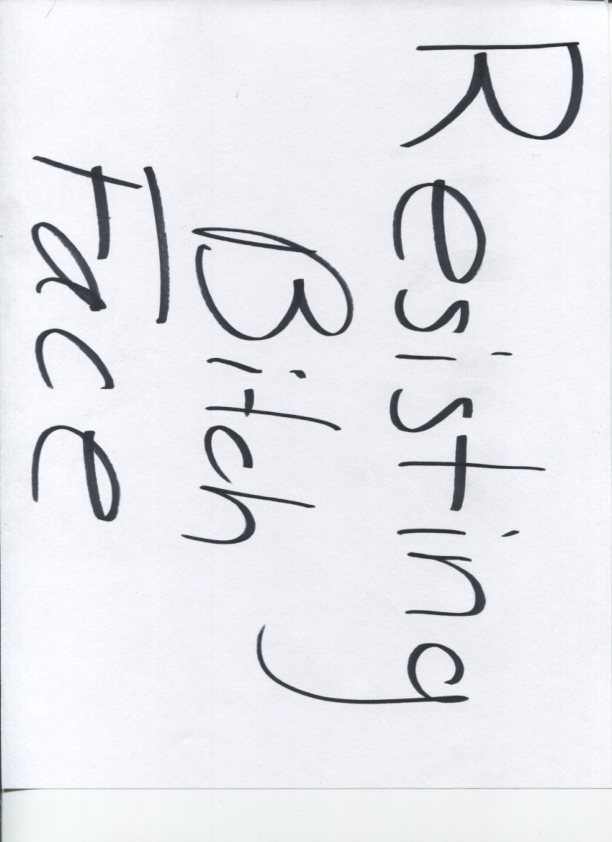 Resisting
Bitch
Face